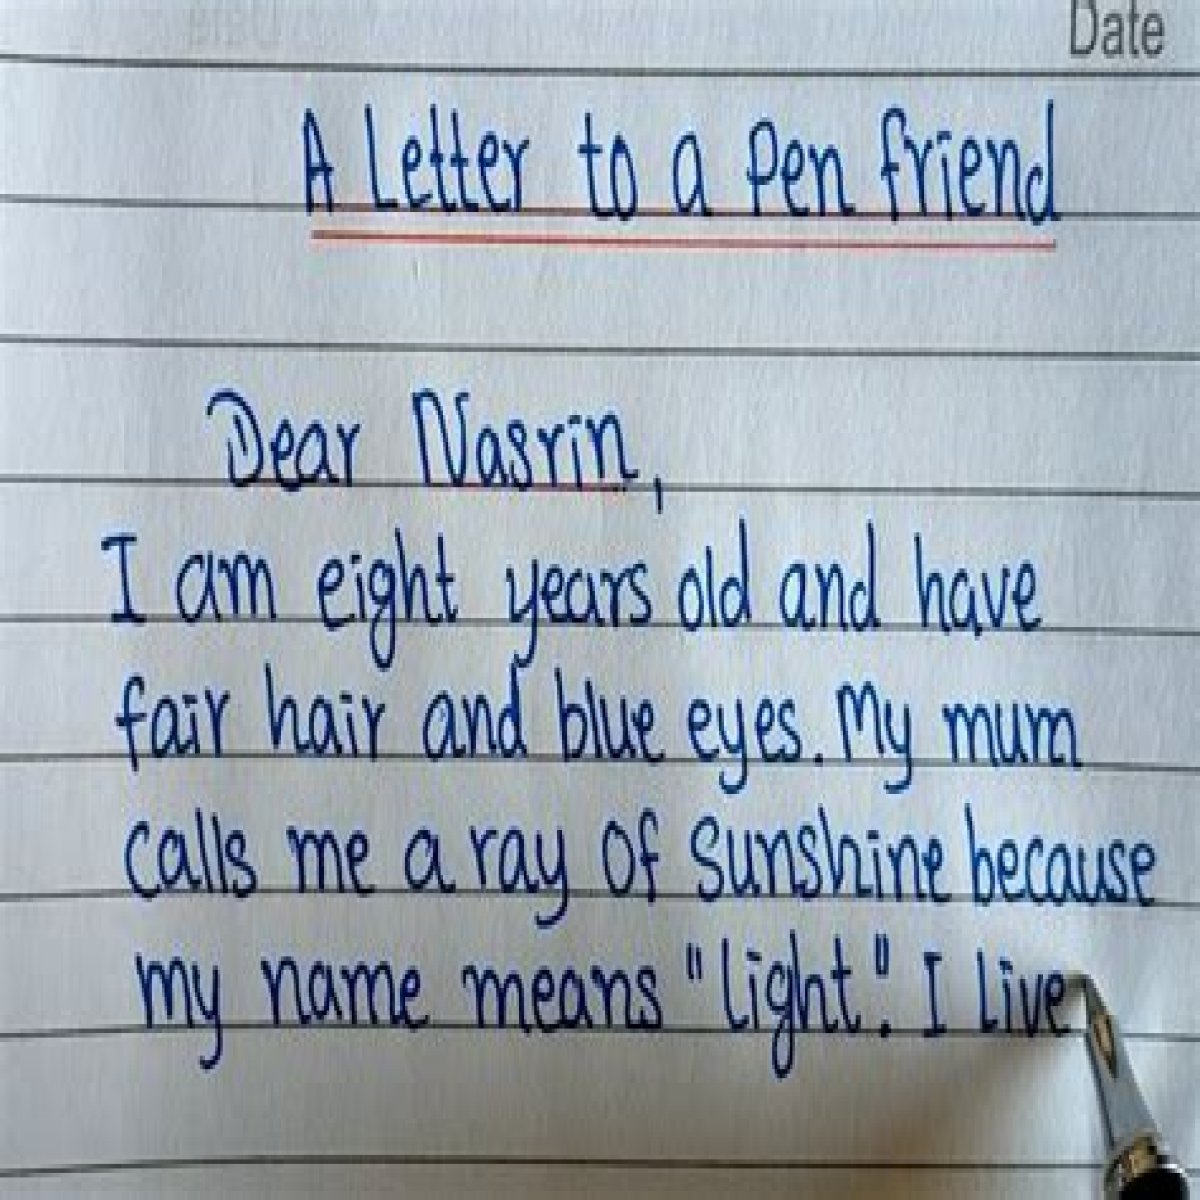 Date
A Letter to a Pen friend
Dear Nasrin,
I am eight years old and have
fair hair and blue eyes. My mum
calls me a ray of sunshine because
my name means "light". I live